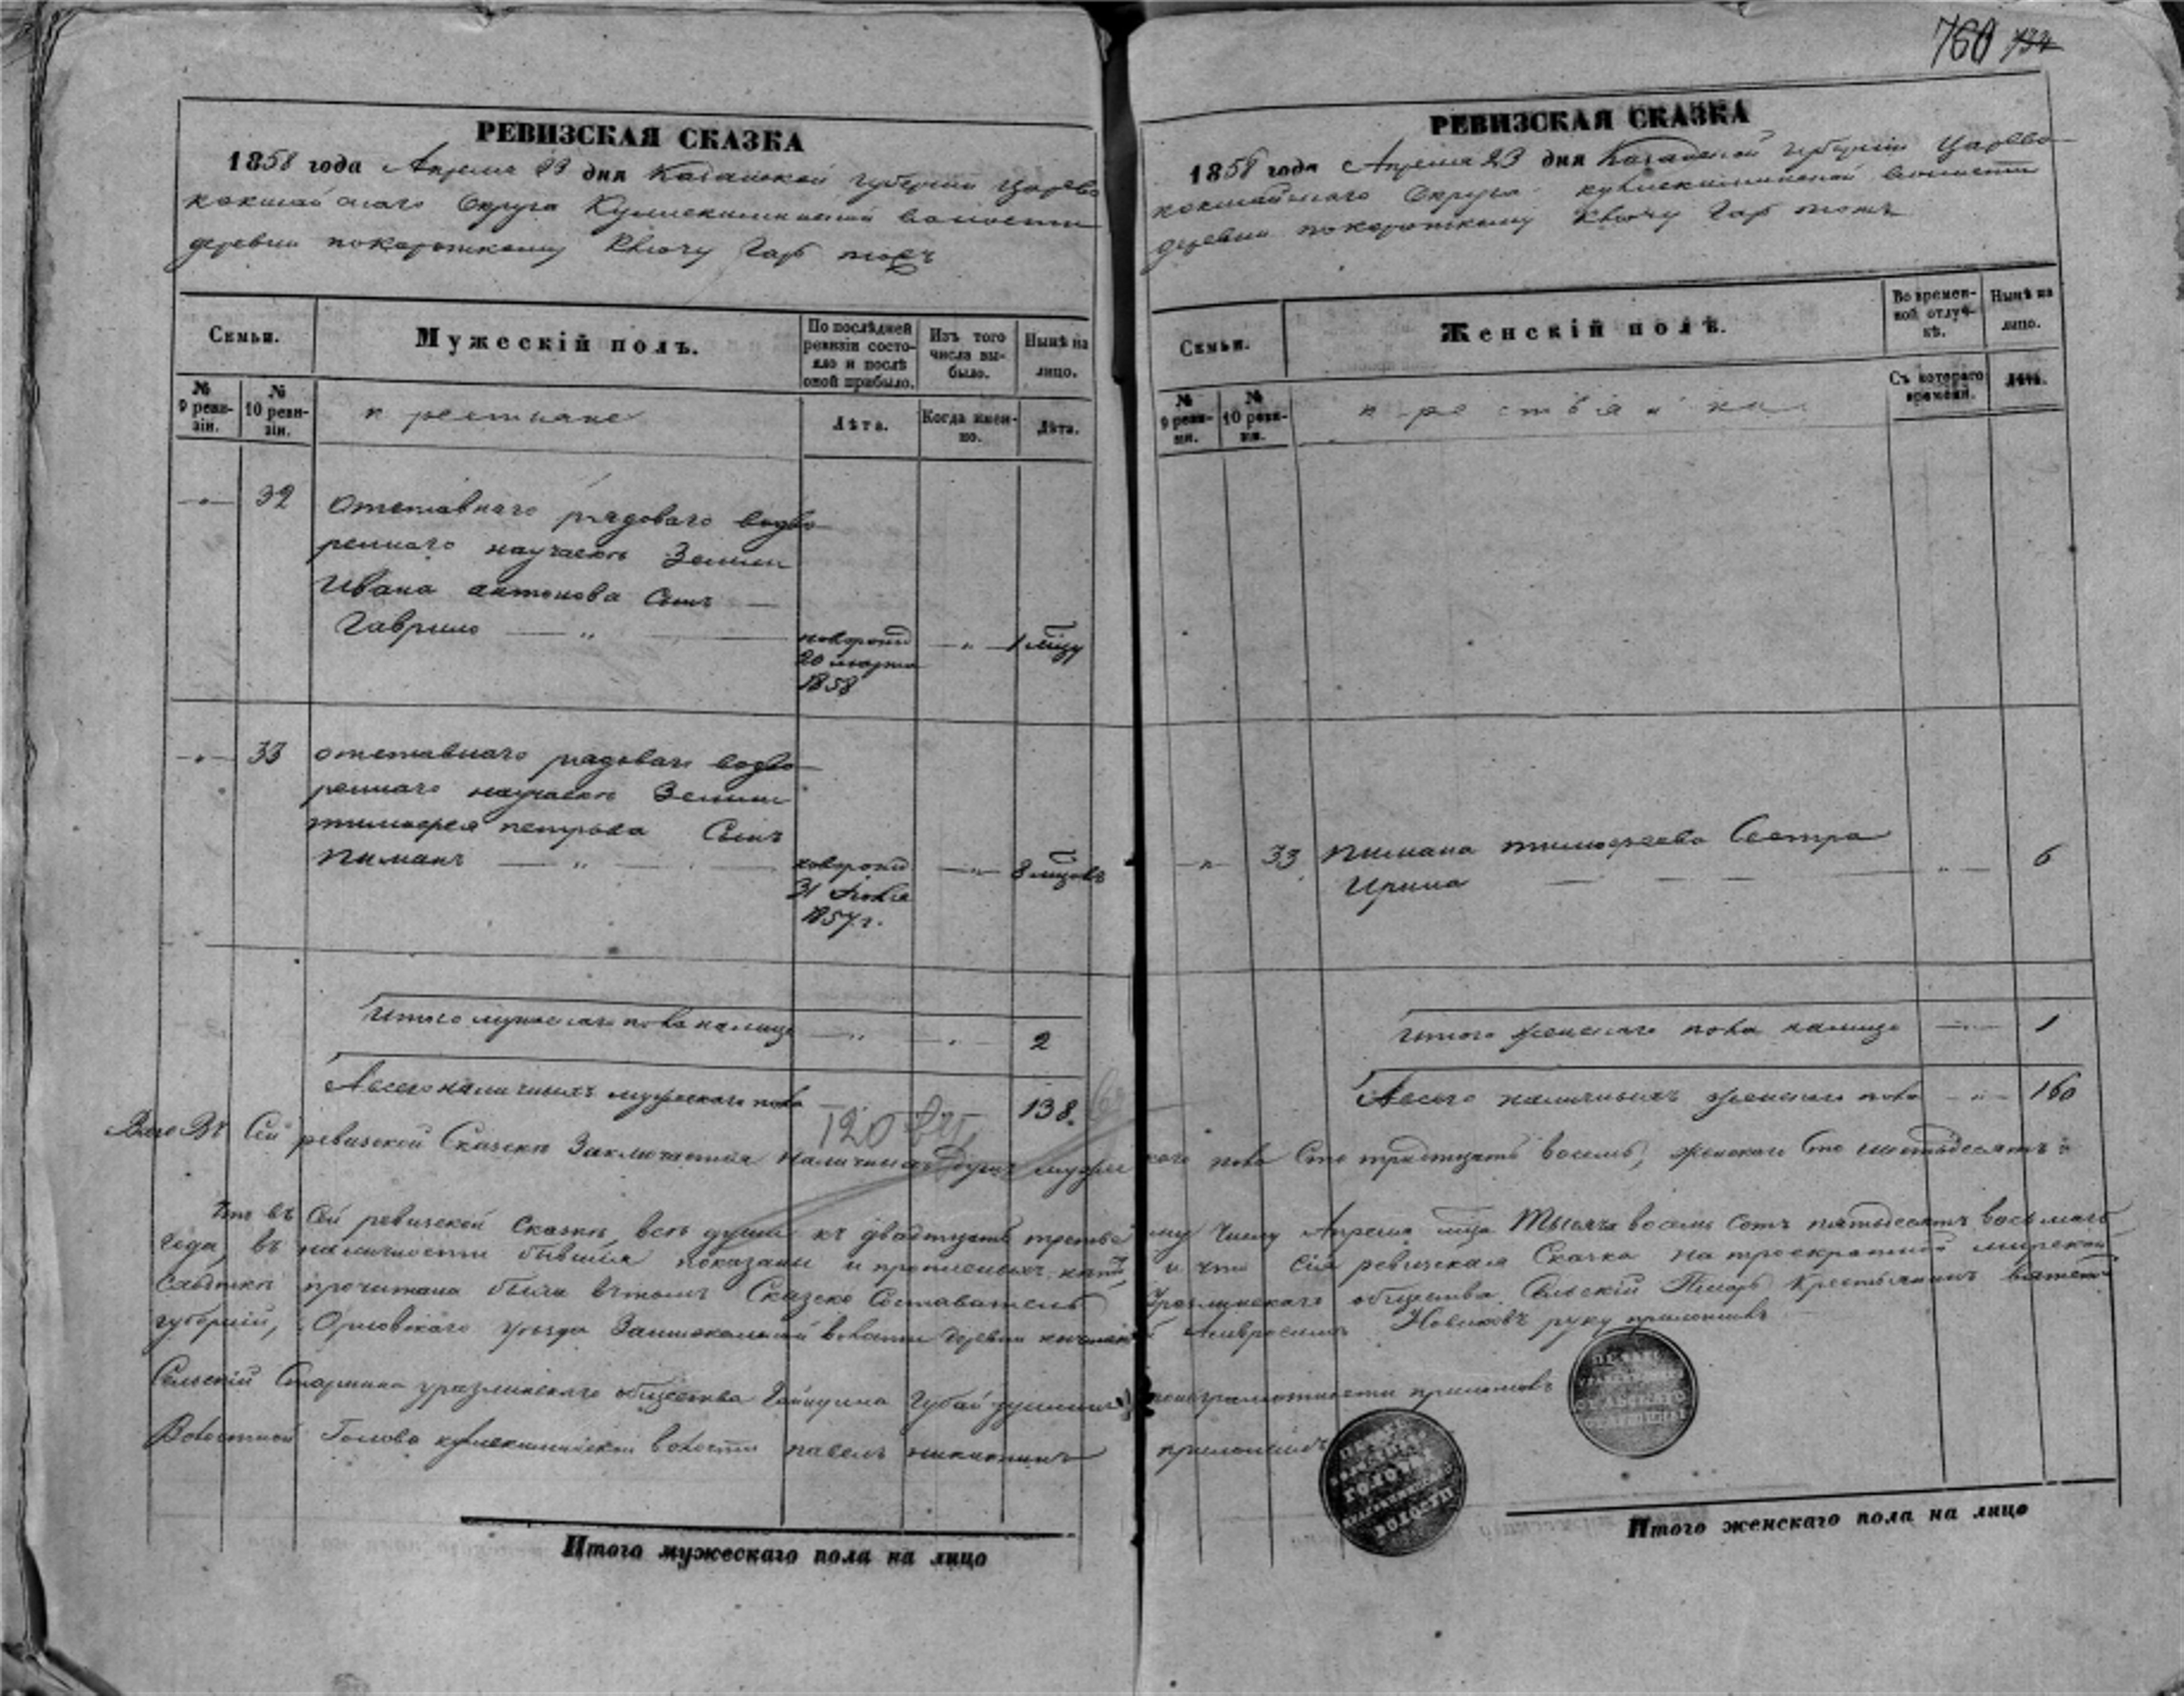 760 734
РЕВИЗСКАЯ СКАЗКА
1858 года Апреля 23 дня Казанской губерніи Царево
кокшайскаго Округа Кулле волости
деревни покороткому Ключу
Семьи.
Мужескій полъ.
По послѣдней ревизіи состояло и послѣ оной прибыло.
Изъ того числа выбыло.
Нынѣ на лицо.
№ 9 ревизіи.
№ 10 ревизіи.
крестьяне
Лѣта.
Когда именно.
Лѣта.
32
Отставнаго рядоваго водво
реннаго научаскѣ Земли
Ивана антонова Сынъ
Гаврило
новорожд
20 марта
1858
1 мцу
33
отставнаго рядоваго водво
реннаго научаскѣ Земли
тимофея петрова Сынъ
Пиманъ
новорожд
31 Июля
1857 г.
8 мцовъ
Итого мужескаго пола налицо
2
Авсего наличныхъ мужескаго пола
138.
РЕВИЗСКАЯ СКАЗКА
1858 года Апреля 23 дня Казанской губерніи Царево
кокшайскаго Округа волости
деревни покороткому Ключу
Семьи.
Женскій полъ.
Во временной отлучкѣ.
Нынѣ на лицо.
№ 9 ревизіи.
№ 10 ревизіи.
крестьянки
Съ котораго времени.
Лѣта.
33
Пимана тимофеева Сестра
Ирина
6
Итого женскаго пола налицо
1
Авсего наличныхъ женскаго пола
160
Всего Въ Сей ревизской Сказкѣ Заключается наличныхъ душъ мужескаго пола Сто тридцать восемь, женскаго Сто шестьдесятъ
Что въ Сей ревизской Сказкѣ всѣ души къ двадцать третьему числу Апреля мца Тысяча восемь сотъ пятьдесятъ восьмаго
года, въ наличности бывшія показаны и прописныхъ нѣтъ и что Сія ревизская Сказка на троекратной мирской
Сходкѣ прочитана была въ томъ Сказко Составатель общества Сельскій Писарь Крестьянинъ Вятской
губерніи, Орловскаго уѣзда волости деревни Амвросимъ Новиковъ руку приложилъ
Сельскій Старшина уразлинскаго общества понеграмотности приложилъ
Волостной Голова волости павелъ никитинъ приложилъ
ПЕЧАТЬ
СЕЛЬСКАГО
СТАРШИНЫ
ГОЛОВЫ
ВОЛОСТИ
Итого мужескаго пола на лицо
Итого женскаго пола на лицо